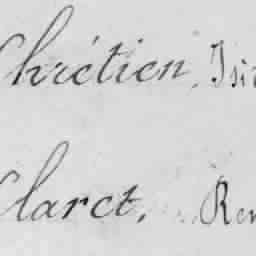 Chrétien, Isi
Claret, Ren